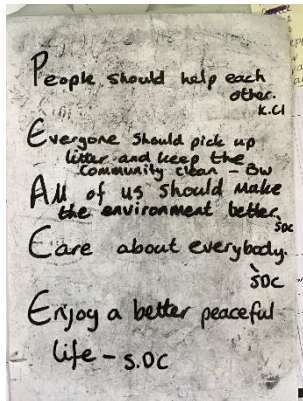 People should help each
other.
K.Cl
Everyone should pick up
litter and keep the
Community clean - BW
All of us should make
the environment better.
SOC
Care about everybody.
SOC
Enjoy a better peaceful
life - S.OC